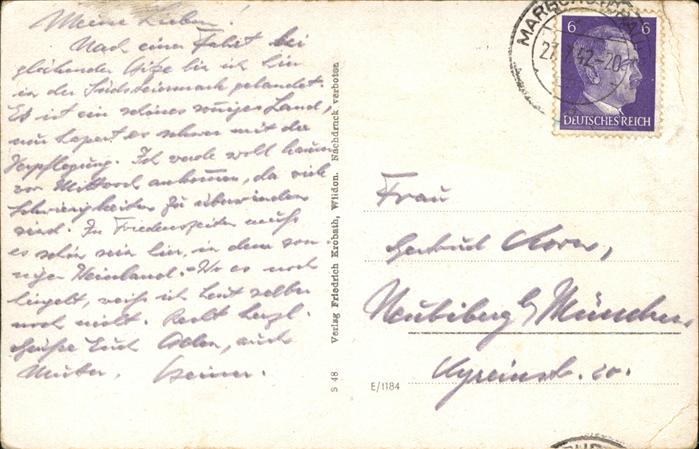 Meine Lieben!
Nach einer Fahrt bei
glühender Hitze bin ich hier
in der Südsteiermark gelandet.
Es ist ein schönes sonniges Land,
nur hapert es schwer mit der
Verpflegung. Ich werde wohl kaum
vor Mittwoch ankommen, da viele
Schwierigkeiten zu überwinden
sind. In Friedenszeiten muß
es schön sein hier, in dem son-
nigen Weinland. - Wo es noch
weiß ich heut selber
noch nicht. Recht herzl.
Grüße Euch Allen, auch
Mutter.
S 48 Verlag Friedrich Krobath, Wildon. Nachdruck verboten
E/1184
MARBURG
27. 42-20
6 6
DEUTSCHES REICH
Frau
Gertrud
Neubiberg b/ München,